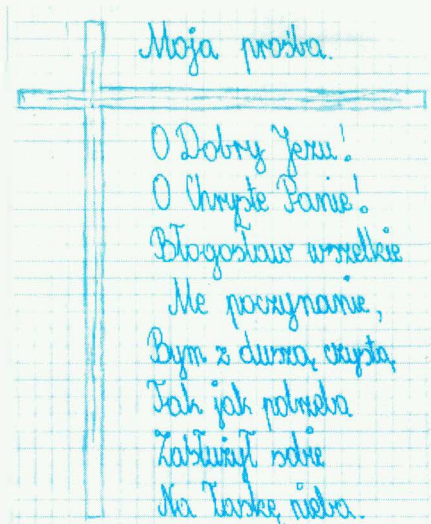 Moja prośba.
O Dobry Jezu!
O Chryste Panie!
Błogosław wszelkie
Me poczynanie,
Bym z duszą czystą,
Tak jak potrzeba
Zasłużył sobie
Na łaskę nieba.